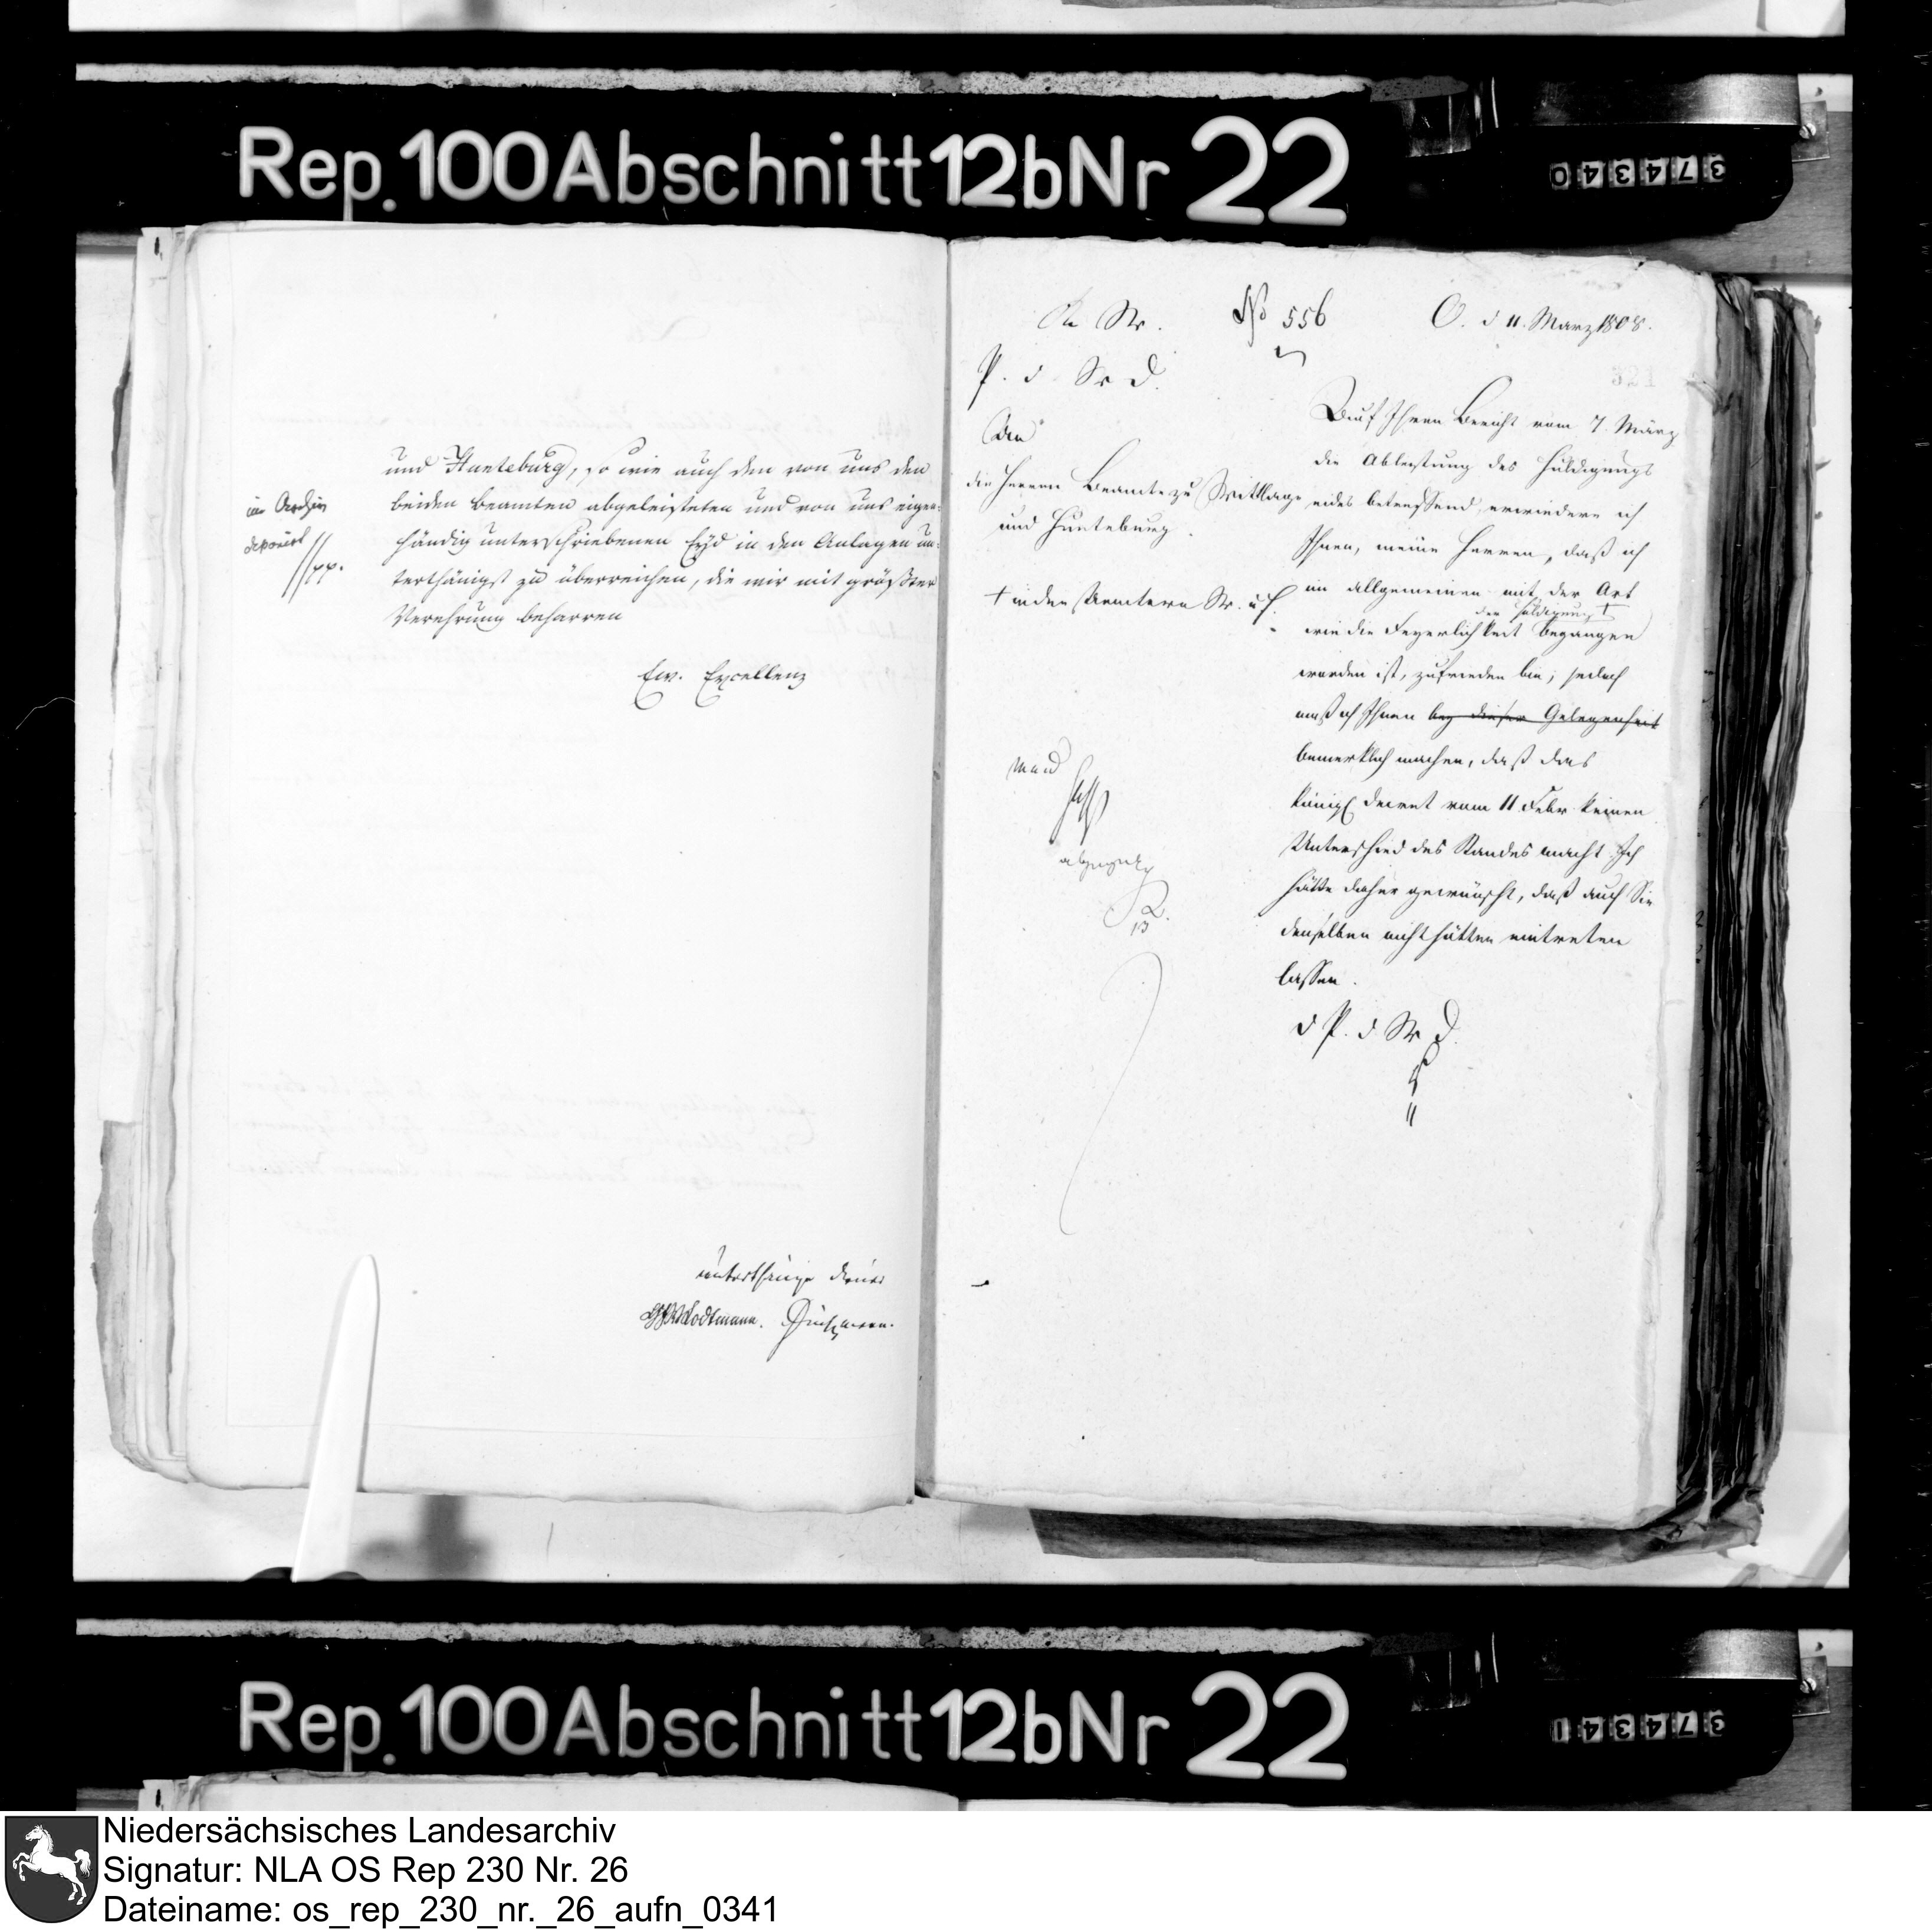 Rep. 100 Abschnitt 12b Nr 22
374340
und Hunteburg, so wie auch den von uns den
beiden Beamten abgeleisteten und von uns eigen-
händig unterschriebenen Eyd in den Anlagen un-
terthänigst zu überreichen, die wir mit größter
Verehrung beharren
Ew. Excellenz
im Archiv
deponirt
pp.
unterthänige Diener
Lodtmann.
No 556
O. d 11. Marz 1808.
321
P. d. Sr D.
An
die Herren Beamte zu Wittlage
und Hunteburg.
Auf Ihren Bericht vom 7. März
die Ableistung des Huldigungs
eides betreffend, erwiedere ich
Ihnen, meine Herren, daß ich
im allgemeinen mit der Art
der Huldigung †
wie die Feyerlichkeit begangen
worden ist, zufrieden bin; jedoch
muß ich Ihnen bey dieser Gelegenheit
bemerklich machen, daß das
Königl Decret vom 11 Febr keinen
Unterschied des Standes macht. Ich
hätte daher gewünscht, daß auch Sie
denselben nicht hätten eintreten
lassen.
d P. d Sr D.
11
† in den Aemtern W. u H.
mund
13
Rep. 100 Abschnitt 12b Nr 22
374341
Niedersächsisches Landesarchiv
Signatur: NLA OS Rep 230 Nr. 26
Dateiname: os_rep_230_nr._26_aufn_0341